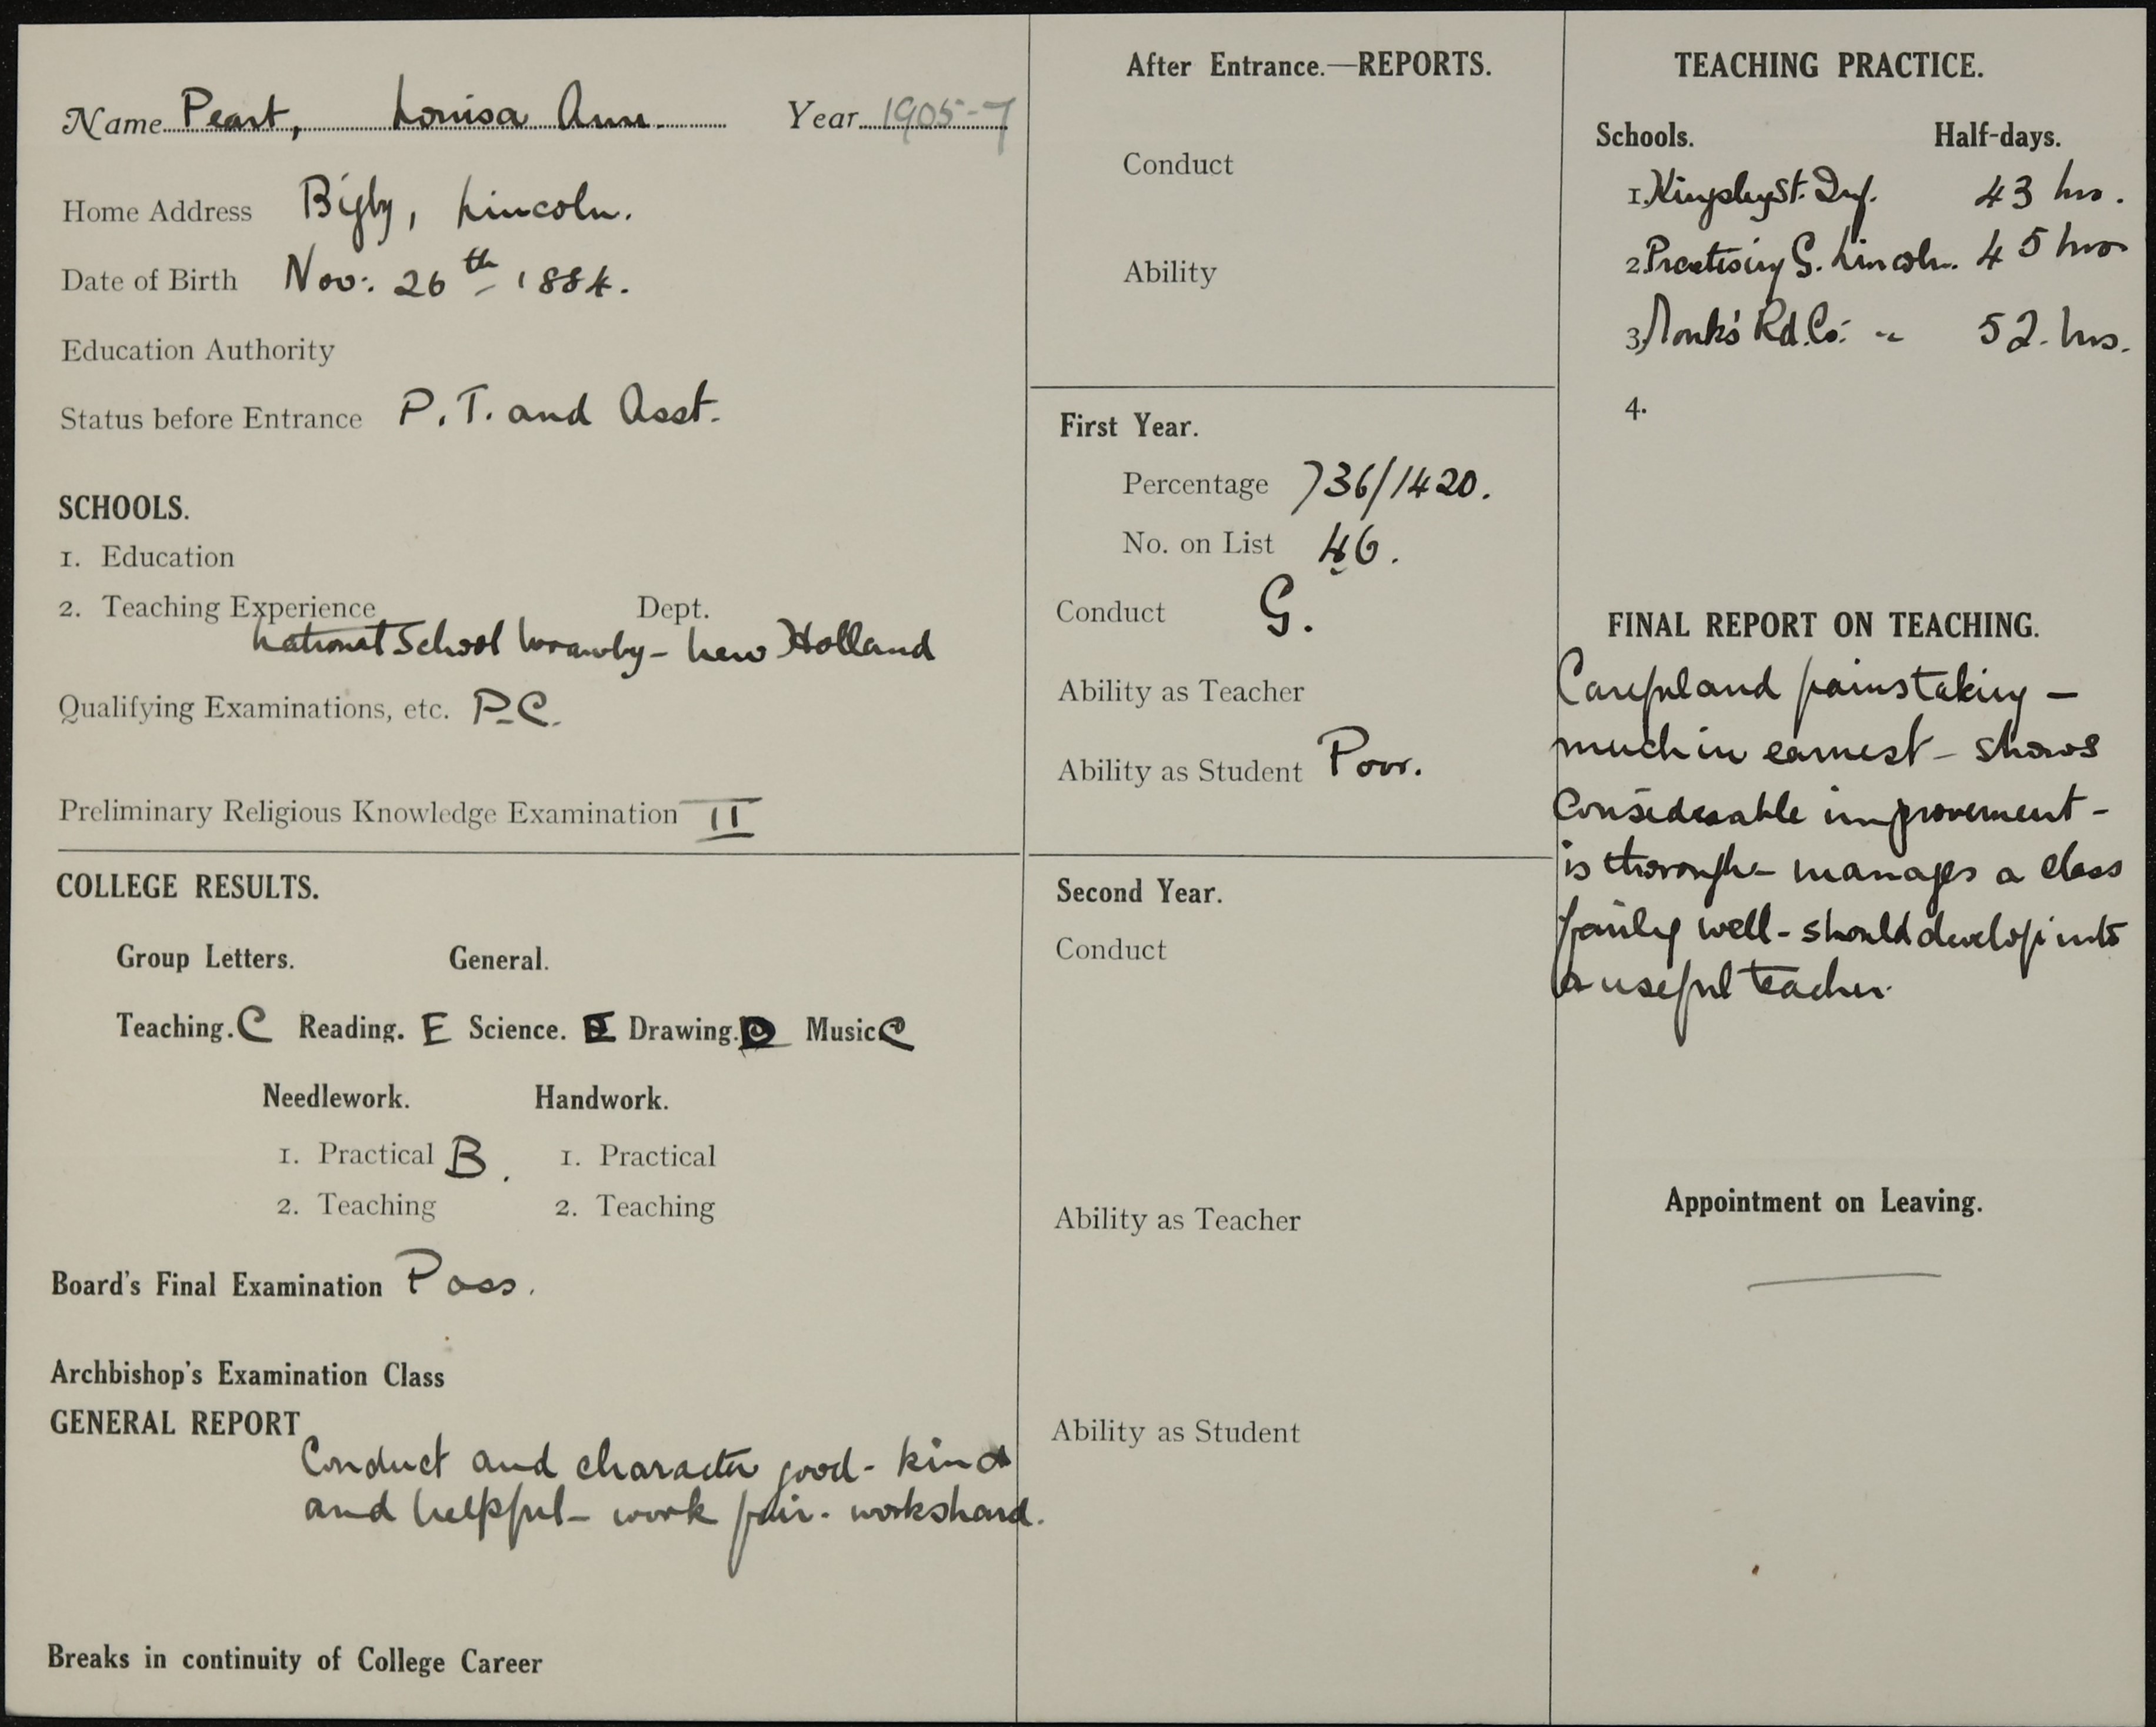 Name Peart, Louisa Ann. Year 1905-7
Home Address Bigby, Lincoln.
Date of Birth Nov: 26th 1884.
Education Authority
Status before Entrance P.T. and Asst.
SCHOOLS.
1. Education
2. Teaching Experience Dept.
National School Wrawby - New Holland
Qualifying Examinations, etc. P.C.
Preliminary Religious Knowledge Examination II
COLLEGE RESULTS.
Group Letters. General.
Teaching. C Reading. E Science. Drawing. Music C
Needlework. Handwork.
1. Practical B. 1. Practical
2. Teaching 2. Teaching
Board's Final Examination Pass.
Archbishop's Examination Class
GENERAL REPORT
Conduct and character good - kind
and helpful - work fair - works hard.
Breaks in continuity of College Career
After Entrance.—REPORTS.
Conduct
Ability
First Year.
Percentage 736/1420.
No. on List 46.
Conduct G.
Ability as Teacher
Ability as Student Poor.
Second Year.
Conduct
Ability as Teacher
Ability as Student
TEACHING PRACTICE.
Schools. Half-days.
1. Kingsley St. Inf. 43 hrs.
2. Practising G. Lincoln. 45 hrs
3. Monks Rd. Co: " 52 hrs.
4.
FINAL REPORT ON TEACHING.
Careful and painstaking -
much in earnest - shows
considerable improvement -
is thorough - manages a class
fairly well - should develop into
a useful teacher.
Appointment on Leaving.